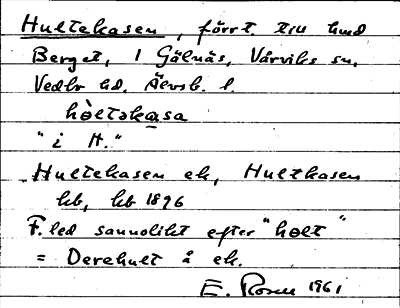 Hultekasen, förrt. till hmd
Berget, 1 Gälnäs, Vårviks sn,
Vedbo hd. Älvsb. l.
hòltəkasa
"i H."
Hultekasen ek, Hultkasen
kb, kb 1896
F. led sannolikt efter "holt"
= Derehult å ek.
E. Rosell 1961